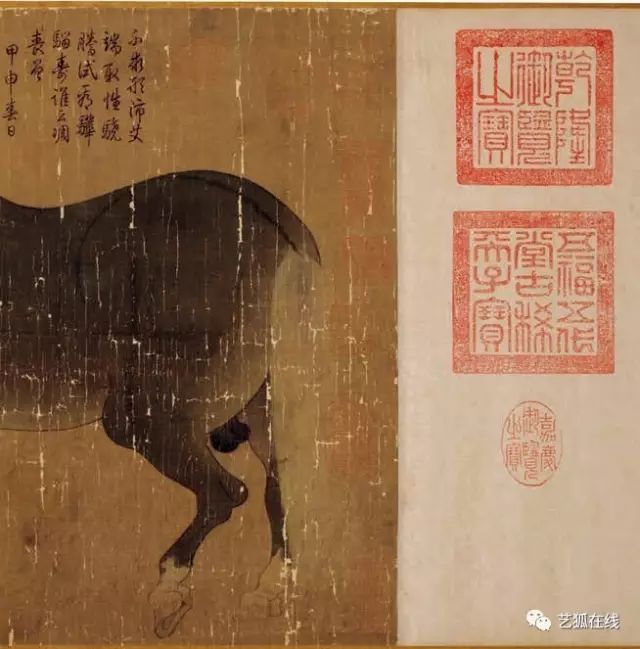 不求形沛艾
端取性驍
騰試看驊
騮壽誰云凋
喪曾
甲申春日
乾隆
御覽
之寶
五福五代
堂古稀
天子寶
嘉慶
御覽
之寶
艺狐在线